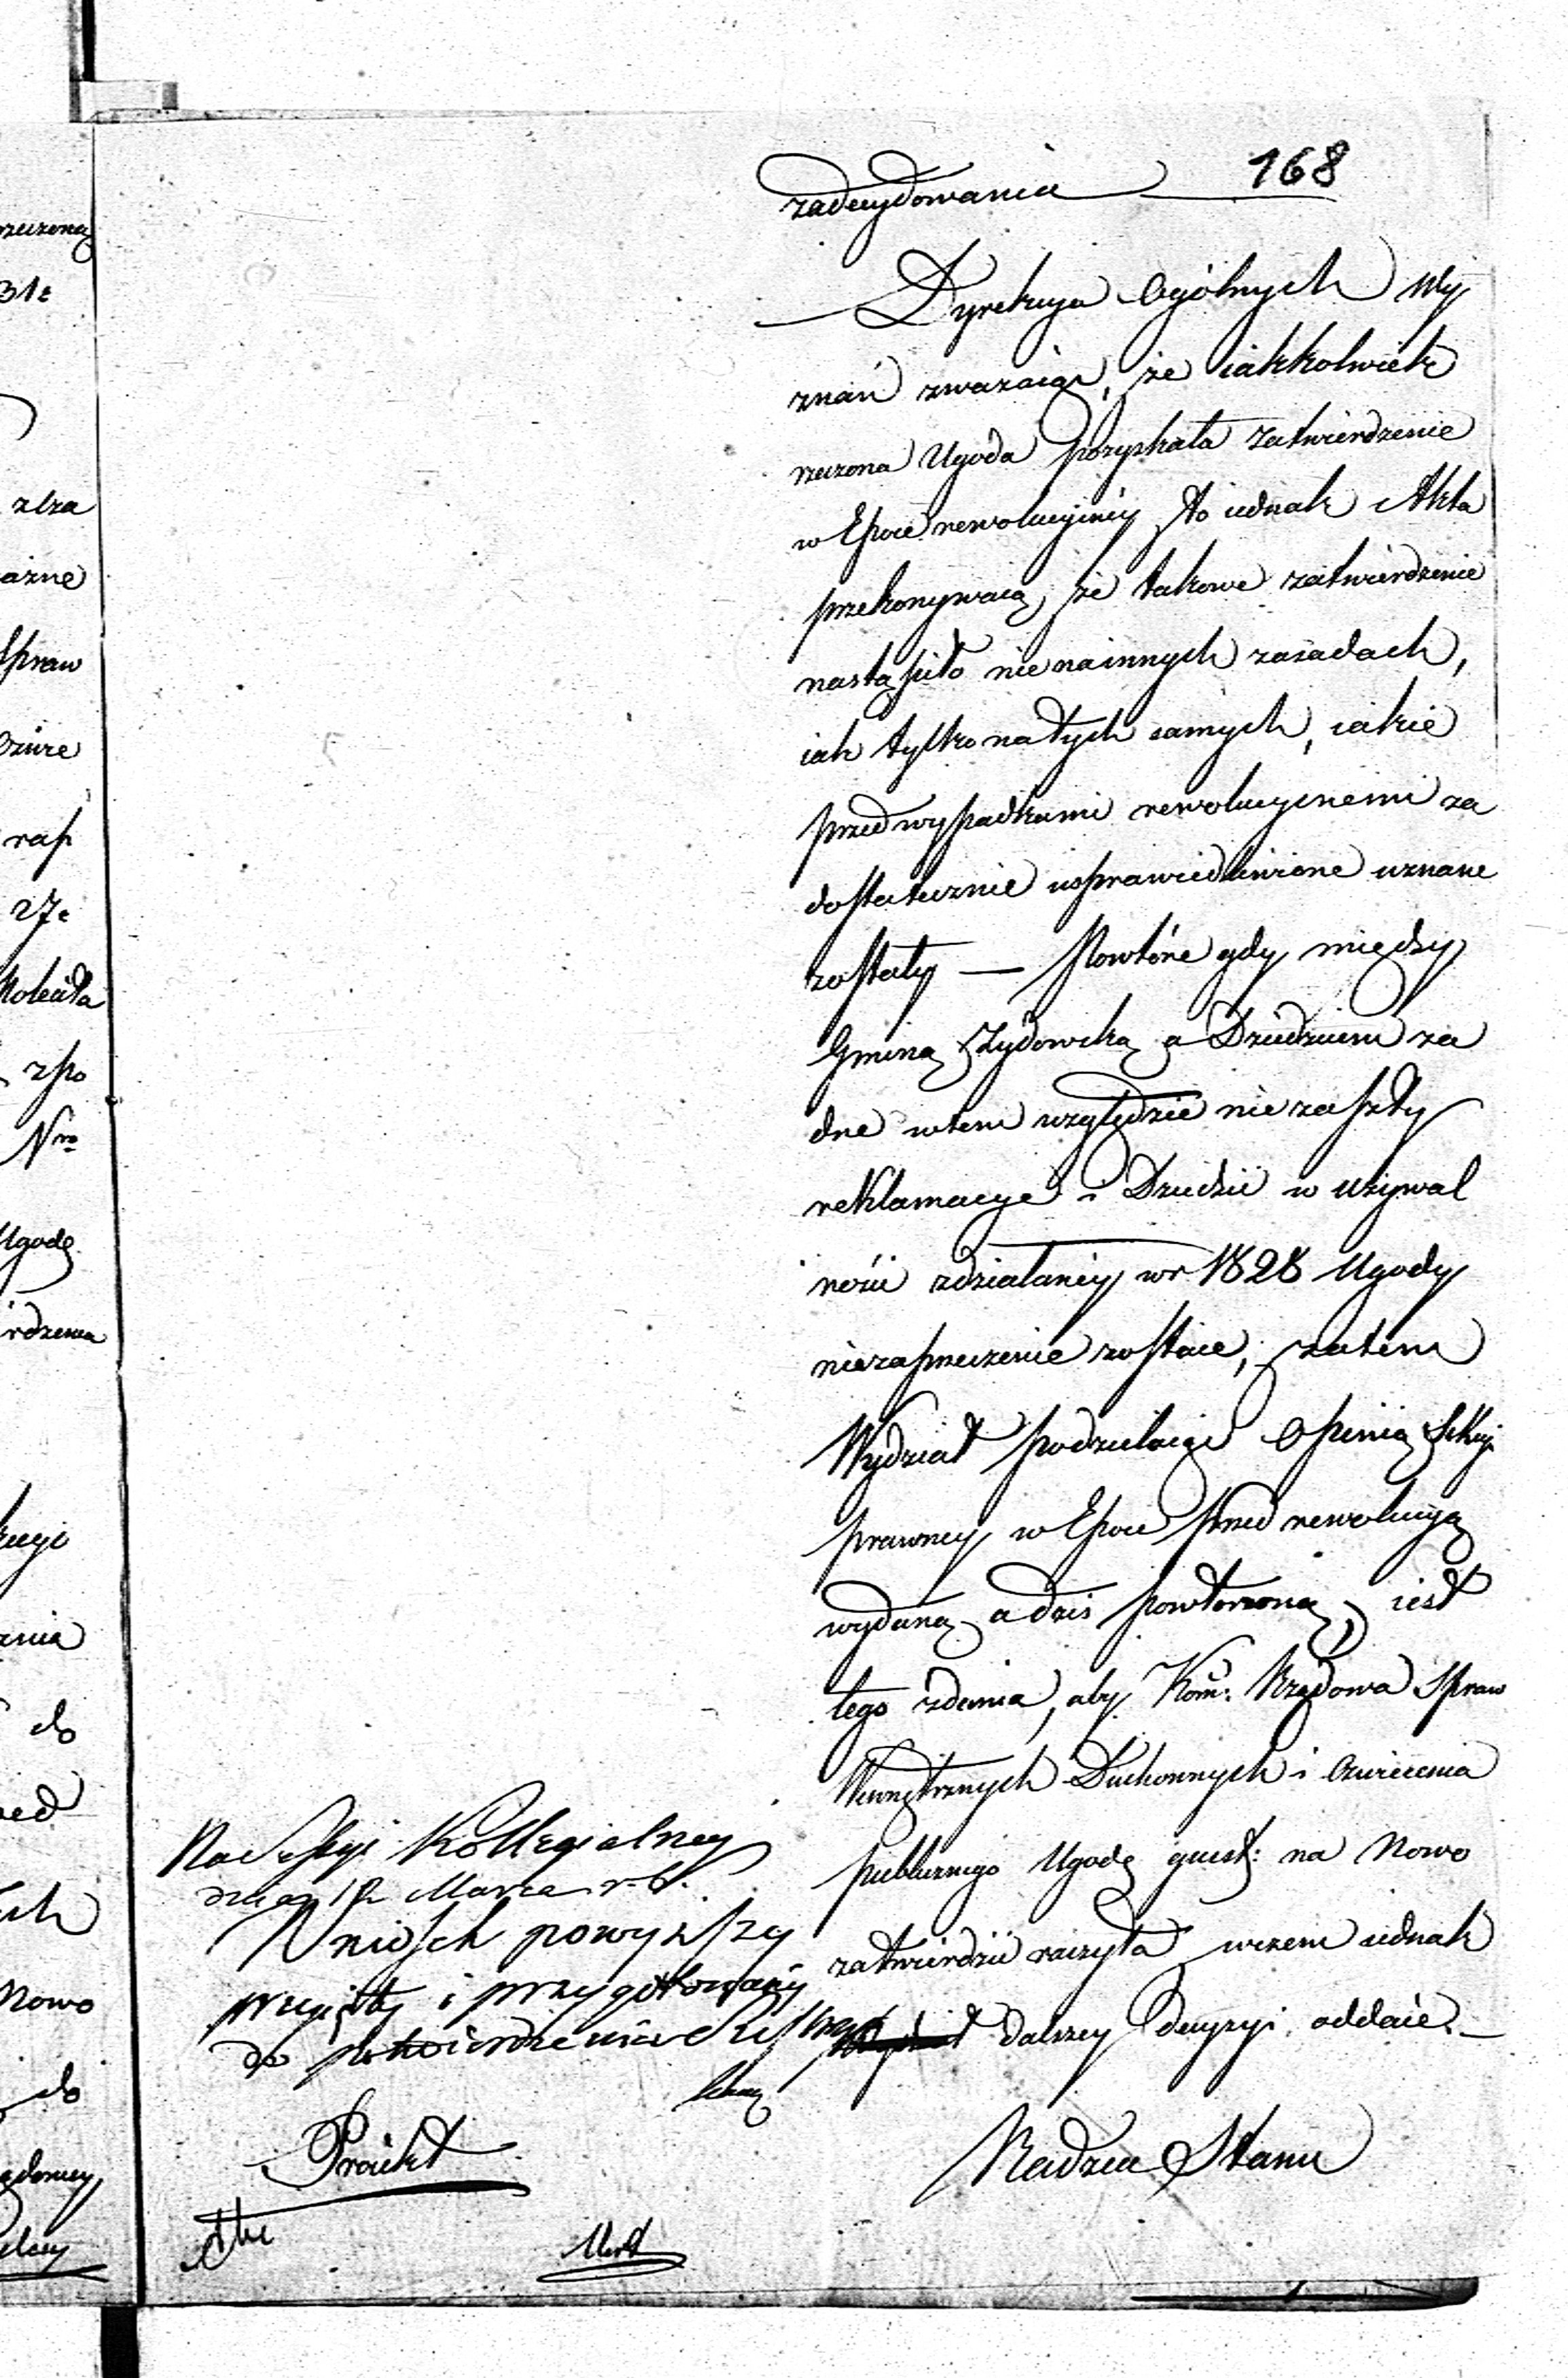 168
zadecydowania
Dyrekcya Ogólnych Wy
znań zważaiąc, że iakkolwiek
rzeczona Ugoda pozyskała zatwierdzenie
w Epoce rewolucyiney to iednak Akta
przekonywaią, że takowe zatwierdzenie
nastąpiło nie na innych zasadach,
iak tylko na tych samych, iakie
przed wypadkami rewolucyinemi za
dostatecznie usprawiedliwione uznane
zostały — Powtóre gdy między
Gminą Żydowską a Dziedzicem ża
dne w tem względzie nie zaszły
reklamacye i Dziedzic w używal
ności zdziałaney w r 1828 Ugody
niezaprzeczenie zostaie, zatem
Wydział podzielaiąc Opinią Sekcyi
prawney w Epoce przed rewolucyą
wydaną a dziś powtórzoną, iest
tego zdania, aby Kom: Rządowa Spraw
Wewnętrznych Duchownych i Oświecenia
publicznego Ugodę quest: na Nowo
zatwierdzić raczyła w czem iednak
dalszey decyzyi oddaie. —
Radzca Stanu
Na Sessyi Kollegialney
dnia 12 Marca r. b.
Wniosek powyższy
przyięty i przygotowany
do potwierdzenia
Proiekt